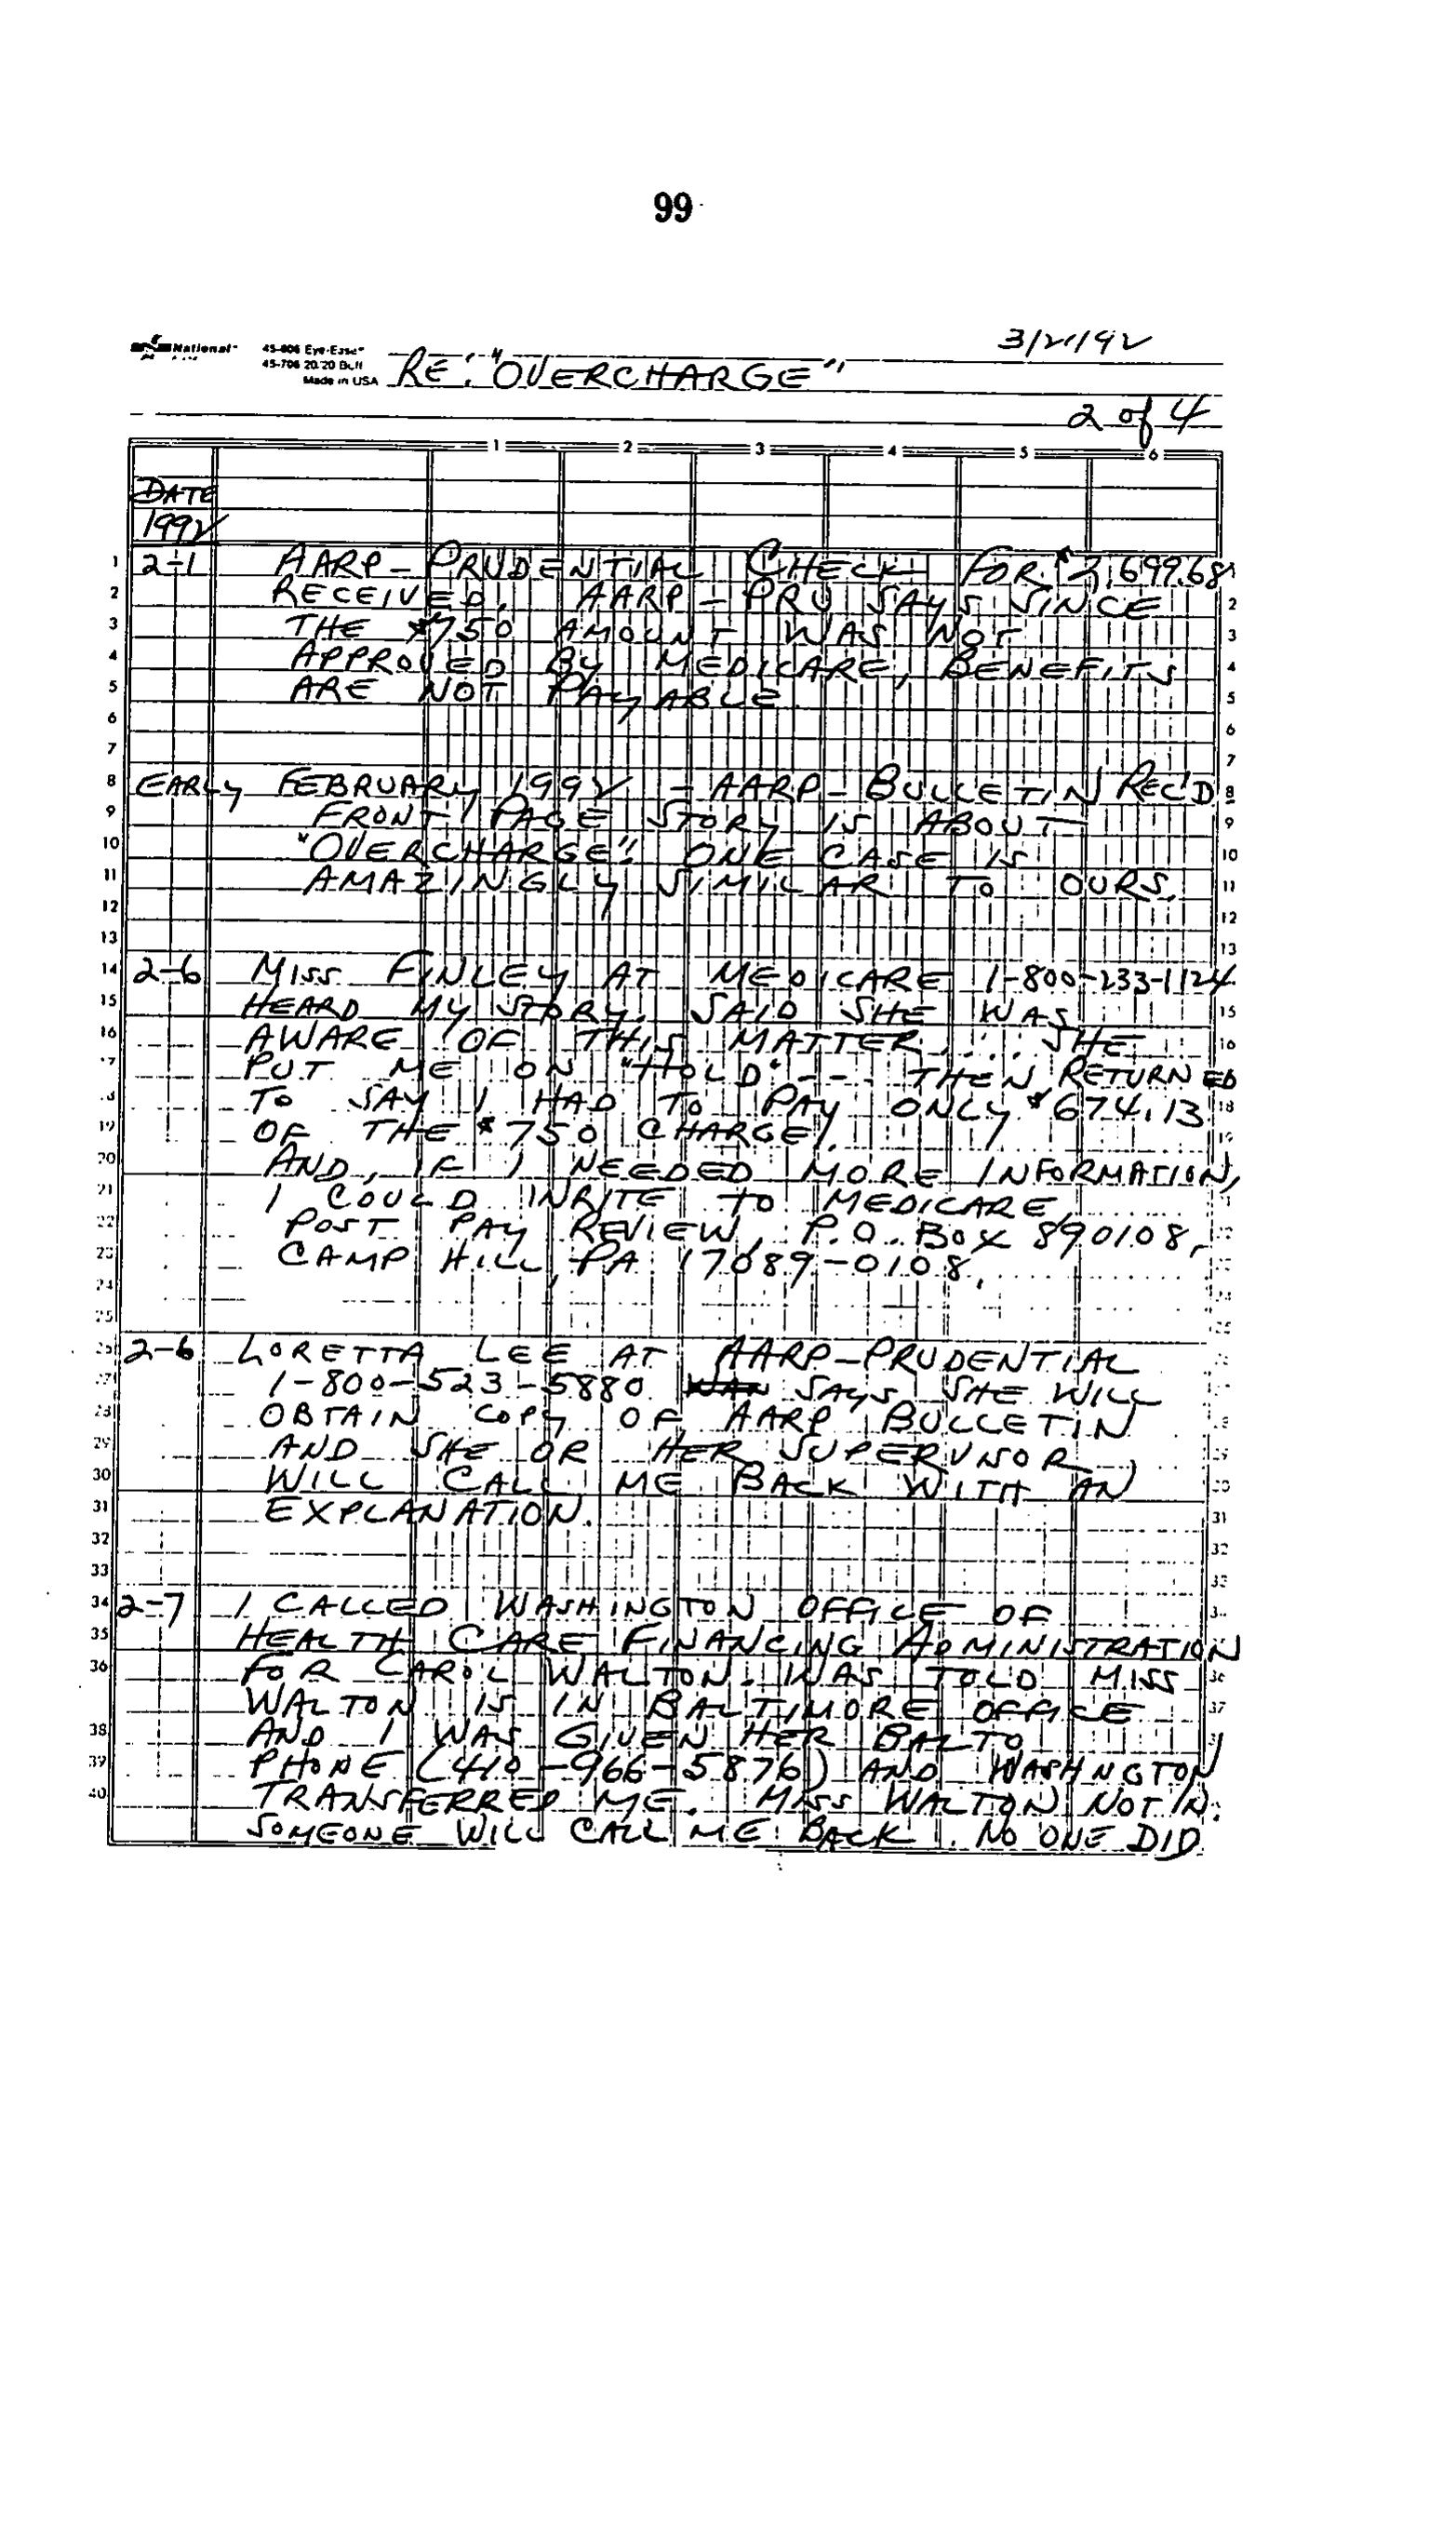 99
National
45-606 Eye-Ease
45-706 20/20 Buff
Made in USA
3/21/92
RE: "OVERCHARGE"
2 of 4
1 2 3 4 5 6
DATE
1992
2-1 AARP-PRUDENTIAL CHECK FOR $2,699.68
RECEIVED. AARP-PRU SAYS SINCE
THE $750 AMOUNT WAS NOT
APPROVED BY MEDICARE, BENEFITS
ARE NOT PAYABLE.
EARLY FEBRUARY 1992 - AARP-BULLETIN REC'D
FRONT PAGE STORY IS ABOUT
"OVERCHARGE". ONE CASE IS
AMAZINGLY SIMILAR TO OURS.
2-6 MISS FINLEY AT MEDICARE 1-800-233-1124
HEARD MY STORY. SAID SHE WAS
AWARE OF THIS MATTER.... SHE
PUT ME ON "HOLD" --- THEN RETURNED
TO SAY I HAD TO PAY ONLY $674.13
OF THE $750 CHARGE!
AND, IF I NEEDED MORE INFORMATION,
I COULD WRITE TO MEDICARE,
POST PAY REVIEW, P.O. BOX 890108,
CAMP HILL, PA 17089-0108.
2-6 LORETTA LEE AT AARP-PRUDENTIAL
1-800-523-5880 SAYS SHE WILL
OBTAIN COPY OF AARP BULLETIN
AND SHE OR HER SUPERVISOR
WILL CALL ME BACK WITH AN
EXPLANATION.
2-7 I CALLED WASHINGTON OFFICE OF
HEALTH CARE FINANCING ADMINISTRATION
FOR CAROL WALTON. WAS TOLD MISS
WALTON IS IN BALTIMORE OFFICE
AND I WAS GIVEN HER BALTO
PHONE (410-966-5876) AND WASHINGTON
TRANSFERRED ME. MISS WALTON NOT IN.
SOMEONE WILL CALL ME BACK. NO ONE DID